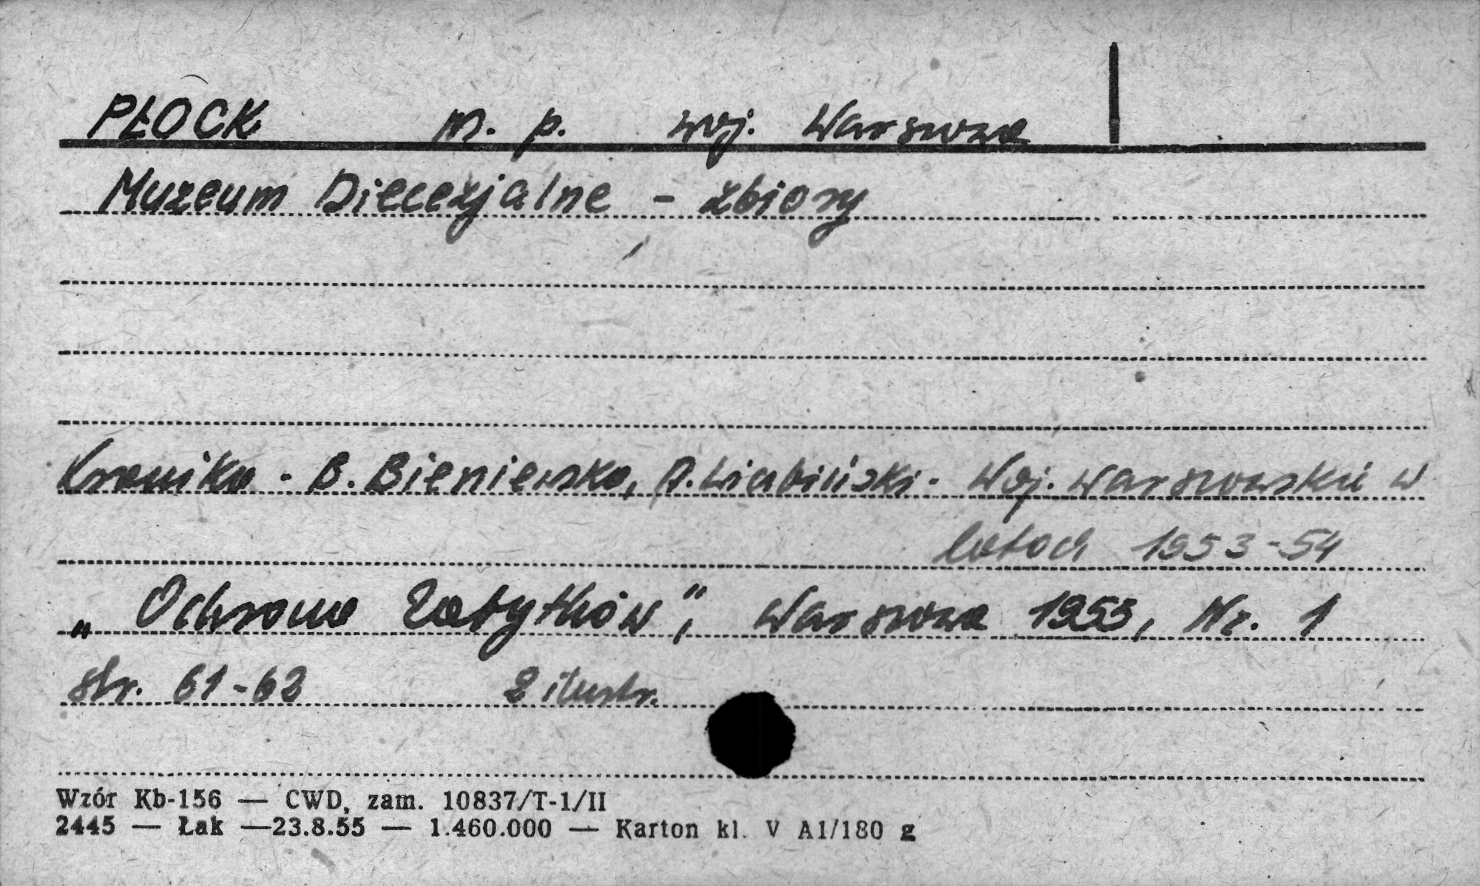 PŁOCK m. p. woj. Warszawa
Muzeum Diecezjalne - zbiory
Kronika - B. Bieniewska, woj. warszawskie w
latach 1953-54
„Ochrona Zabytków", Warszawa 1955, Nr. 1
str. 61-62 2 ilustr.
Wzór Kb-156 — CWD, zam. 10837/T-1/II
2445 — Łak —23.8.55 — 1.460.000 — Karton kl. V A1/180 g